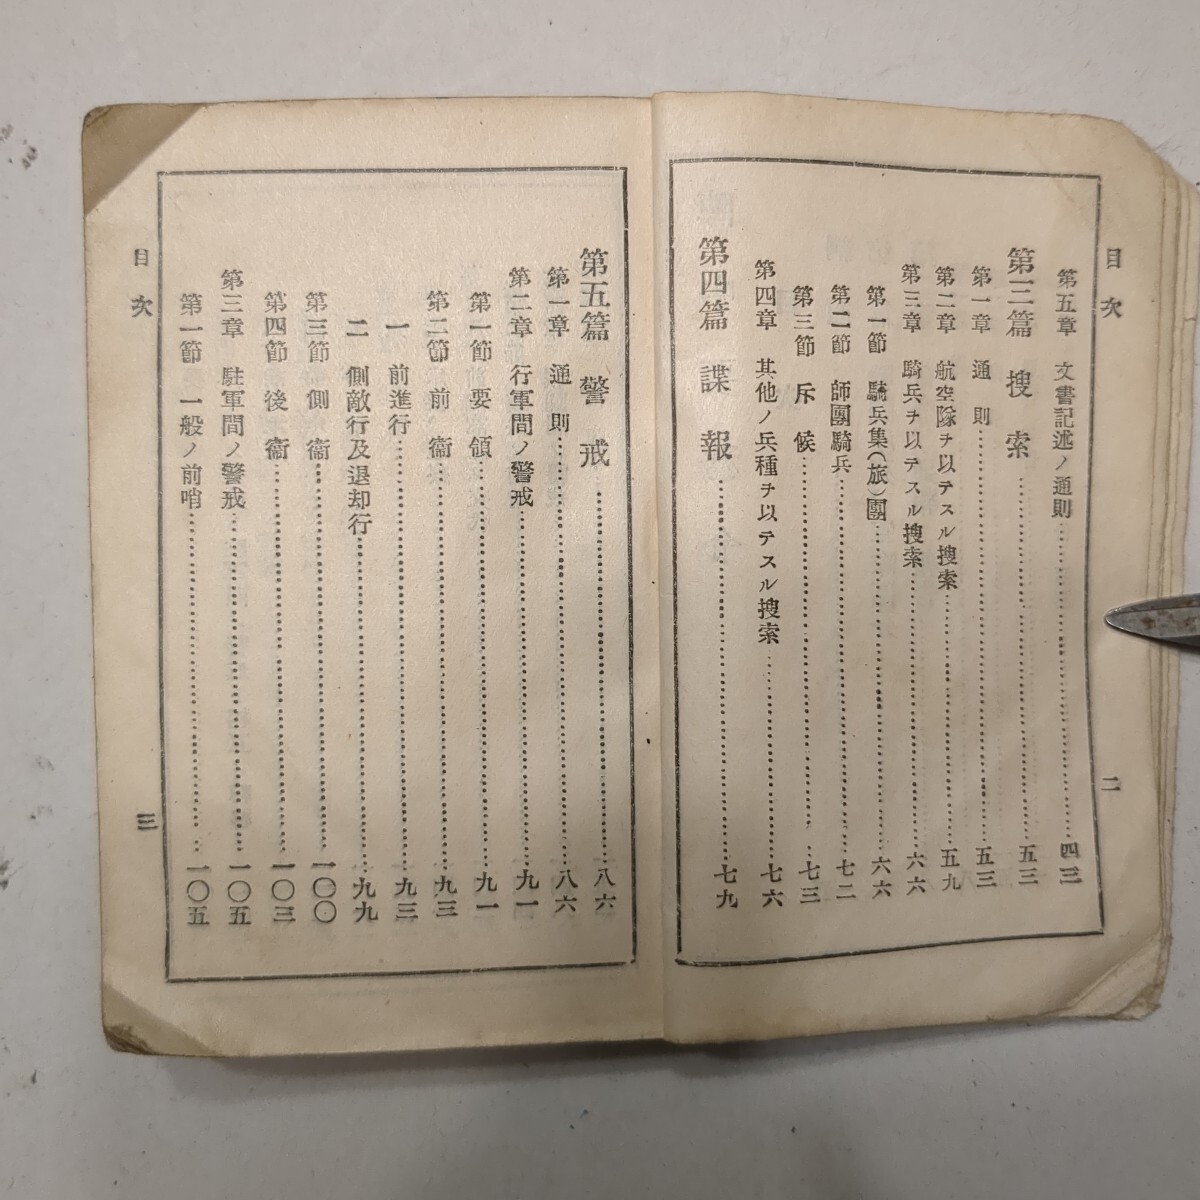 目次
二
第五章　文書記述ノ通則……四三
第三篇　搜索……五三
第一章　通則……五三
第二章　航空隊ヲ以テスル搜索……五九
第三章　騎兵ヲ以テスル搜索……六六
第一節　騎兵集(旅)團……六六
第二節　師團騎兵……七二
第三節　斥候……七三
第四章　其他ノ兵種ヲ以テスル搜索……七六
第四篇　諜報……七九
第五篇　警戒……八六
第一章　通則……八六
第二章　行軍間ノ警戒……九一
第一節　要領……九一
第二節　前衞……九三
一　前進行……九三
二　側敵行及退却行……九九
第三節　側衞……一〇〇
第四節　後衞……一〇三
第三章　駐軍間ノ警戒……一〇五
第一節　一般ノ前哨……一〇五
目次
三